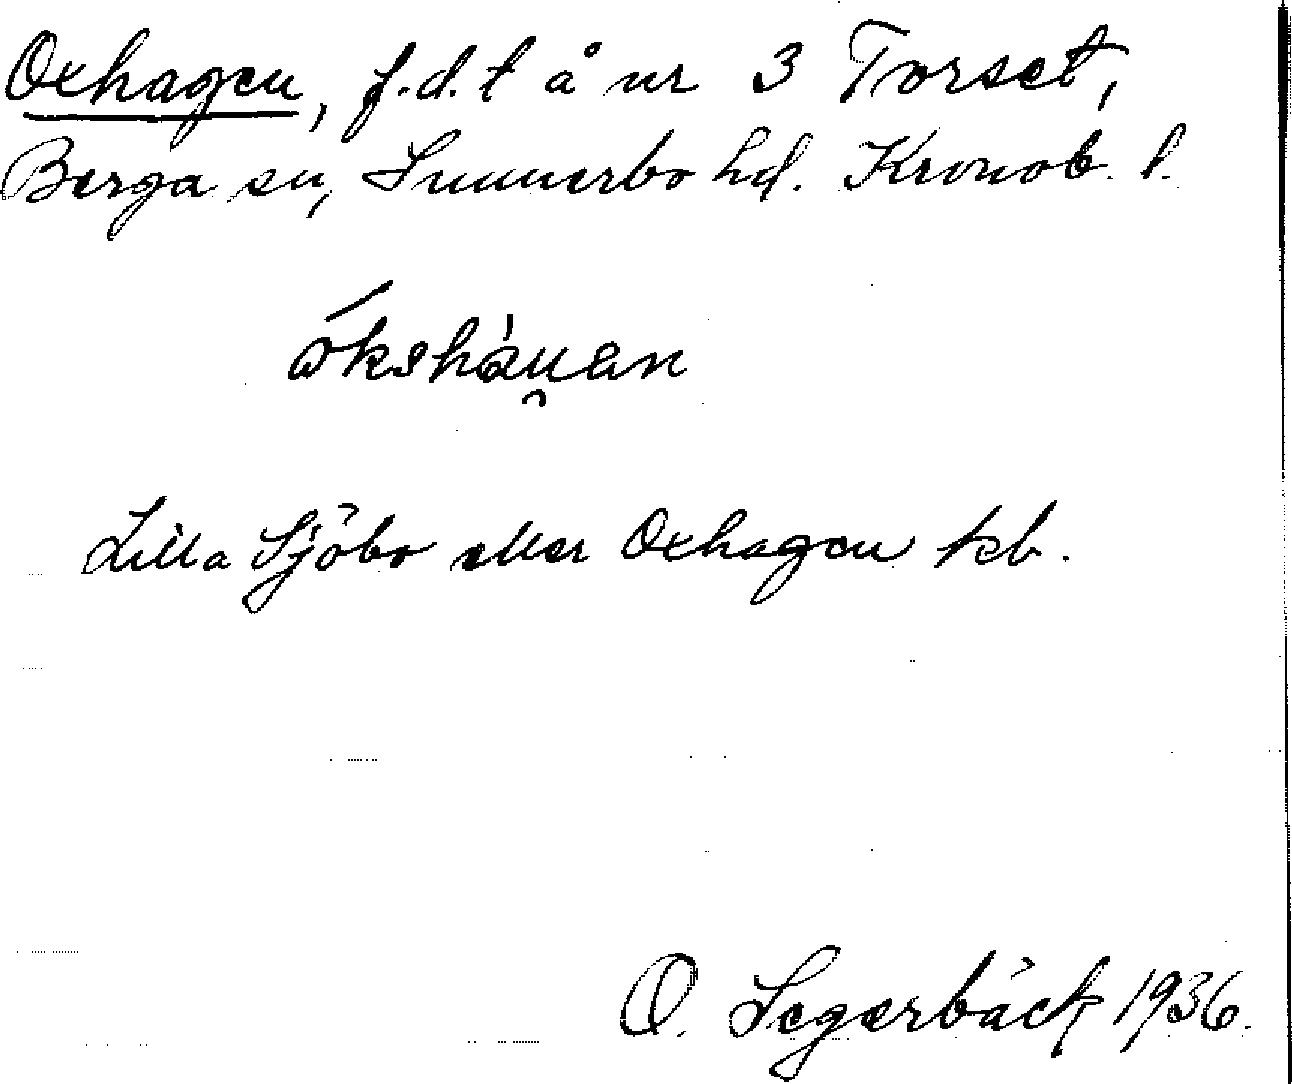 Oxhagen, f.d. t å nr 3 Torset,
Berga sn, Sunnerbo hd. Kronob. l.
Lilla Sjöbo eller Oxhagen kb.
O. Segerbäck 1936.